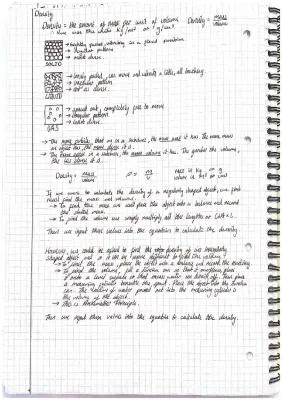 Density
Density = the amount of mass per unit of volume. Density = mass
volume
units kg/m³ or g/cm³
→ tightly packed, vibrating in a fixed position
→ regular pattern
→ most dense.
SOLID
→ closely packed, can move
→ irregular pattern
→ dense.
LIQUID
→ spread out, completely free to move
→ irregular pattern
→ least dense.
GAS
→ The more particles that in a substance, the more mass it has. The more mass
an object has, the more dense it is.
→ The more space in a substance, the more volume it has. The greater the volume,
the less dense it is.
Density = mass
volume
ρ = m
v
mass is kg or g
volume is m³ or cm³
If we were to calculate the density of a regularly shaped object, we first
must find the mass and volume.
→ To find the mass we will place the object onto a balance and record
the stated mass.
→ To find the volume we simply multiply all the lengths or L×W×L.
Then we input these values into the equation to calculate the density.
However, we could be asked to find the density of an irregularly
shaped object and it is more difficult to find the volume.
→ To find the mass, place the object onto a balance and record the reading.
→ To find the volume, fill a Eureka can so that
water is level. Then place
a measuring cylinder beneath the spout. Place the object into the Eureka
can. The volume of water pushed out into the measuring cylinder is
the volume of the object.
→ This is Archimedes Principle.
Then we input these values into the equation to calculate the density.